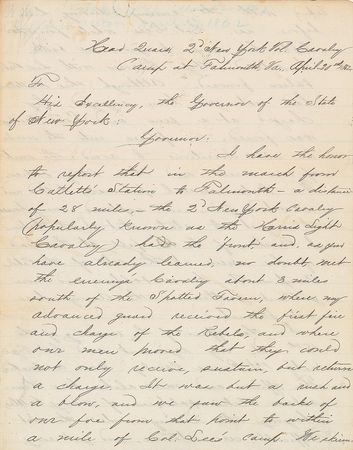 Head Quars. 2d New York Vol. Cavalry
Camp at Falmouth, Va., April 21st
To
His Excellency, the Governor of the State
of New York:
Governor:
I have the honor
to report that in the march from
Catlett's Station to Falmouth - a distance
of 28 miles, - the 2d New York Cavalry
(popularly known as the Harris Light
Cavalry) had the front, and, as you
have already learned, no doubt, met
the enemy's Cavalry about 3 miles
south of the Spotted Tavern, where my
advanced guard received the first fire
and charge of the Rebels, and where
our men proved that they could
not only receive, sustain, but return
a charge. It was but a rush and
a blow, and we saw the backs of
our foe from that point to within
a mile of Col. Lee's camp. We